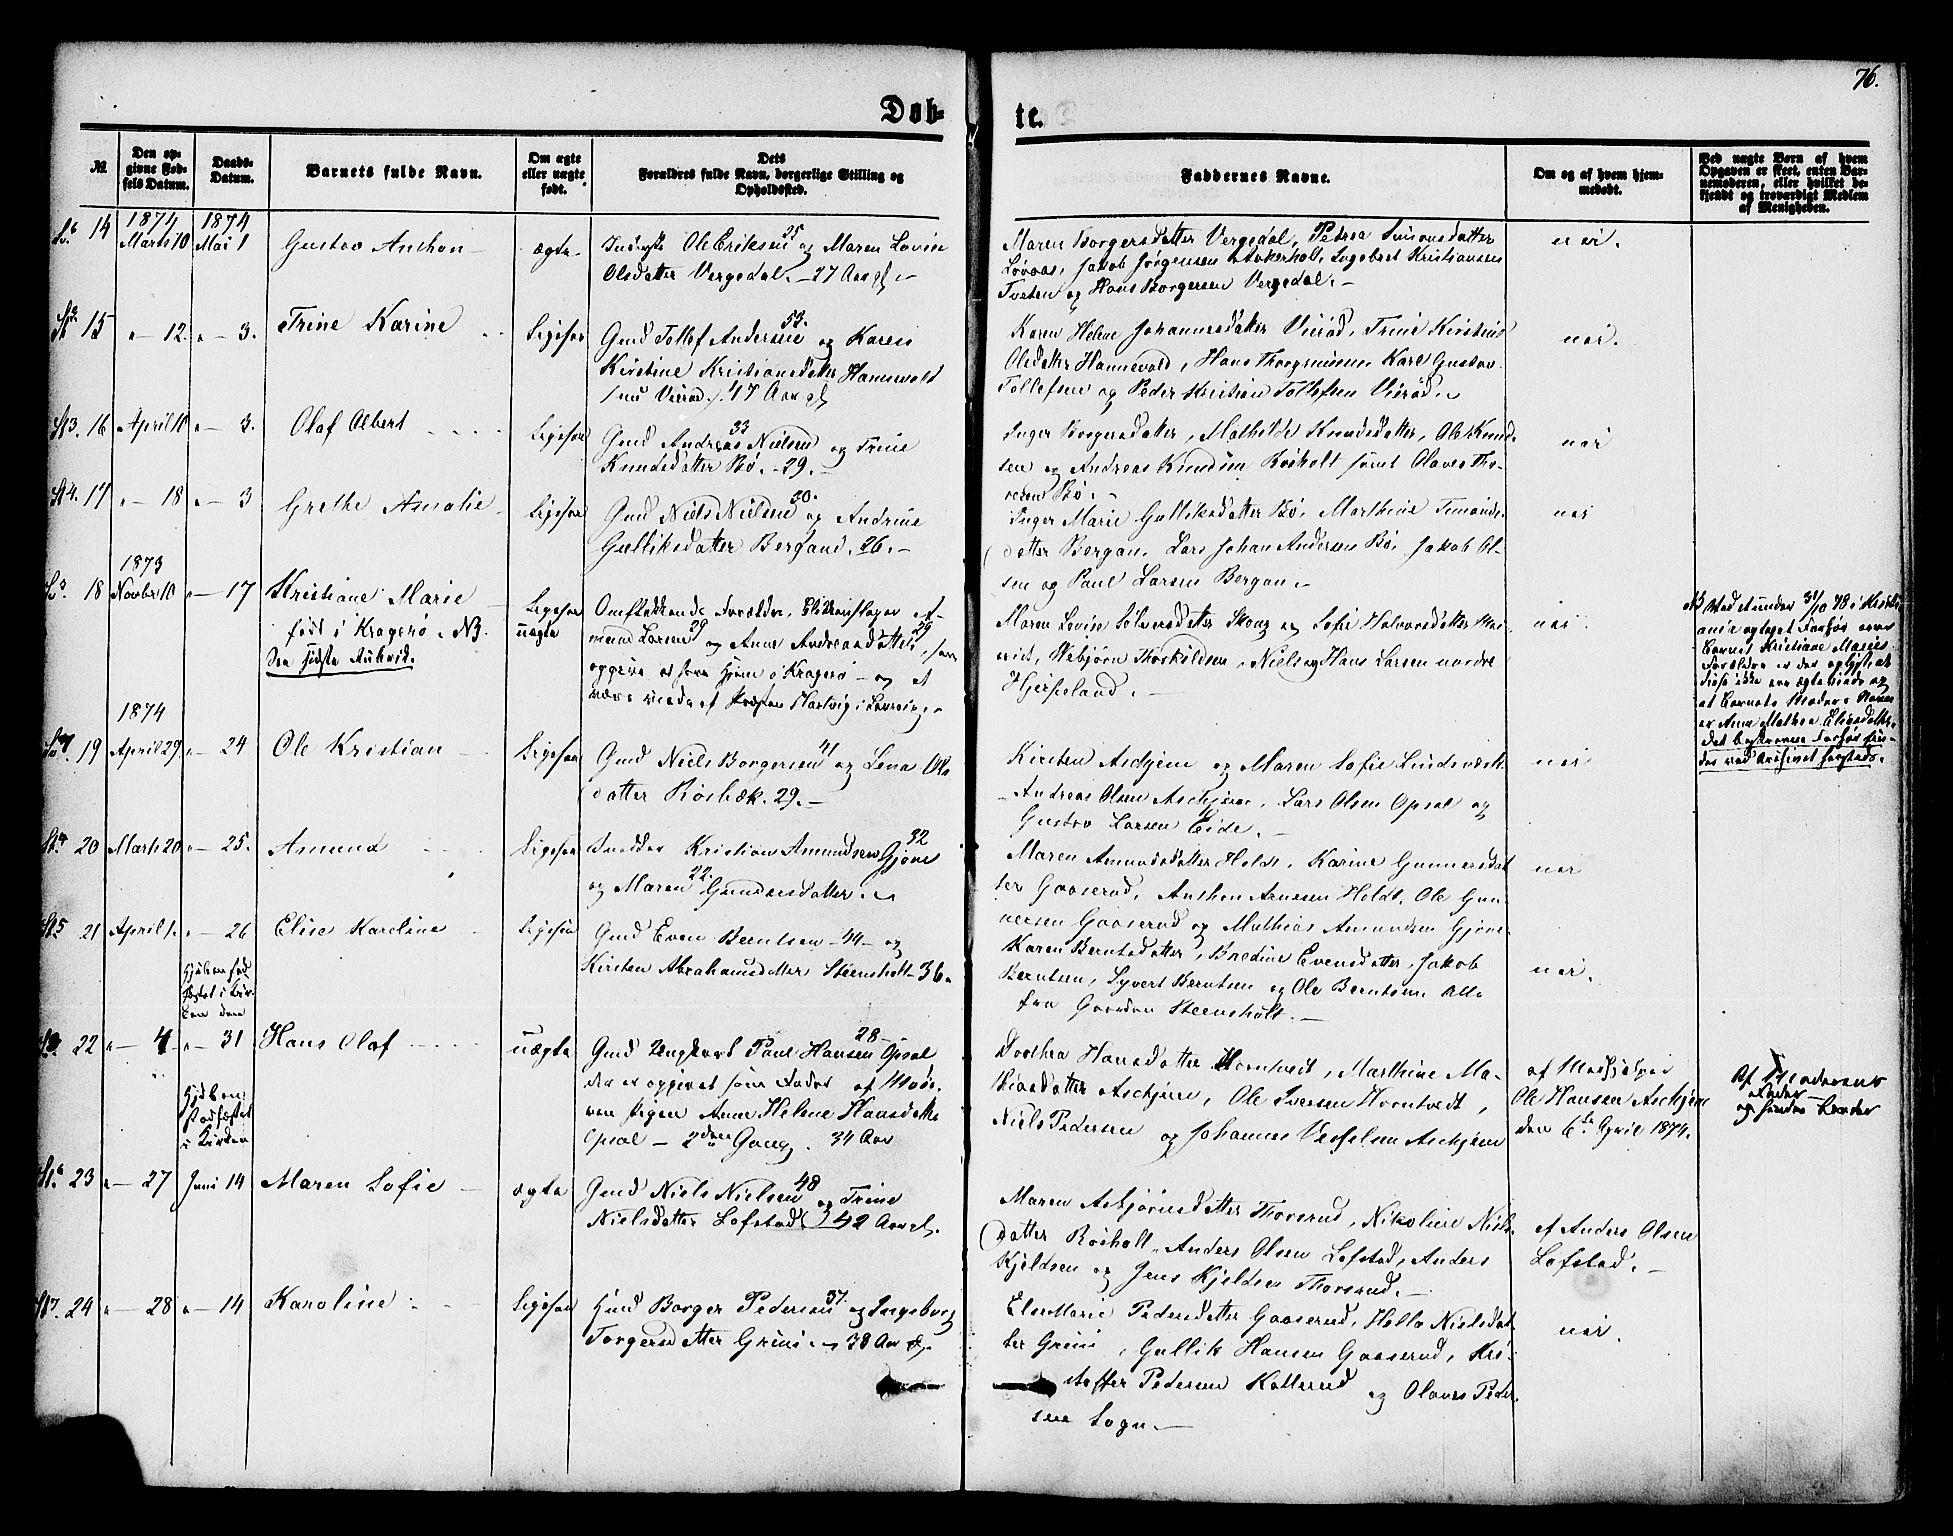 76.
Døb-
te.
№
Den op-
givne Fød-
sels Datum.
Daabs-
Datum.
Barnets fulde Navn.
Om ægte
eller uægte
født.
Dets
Forældres fulde Navn, borgerlige Stilling og
Opholdssted.
Faddernes Navne.
Om og af hvem hjem-
medøbt.
Ved uægte Børn af hvem
Opgaven er skeet, enten Bar-
nemoderen, eller hvilket be-
kjendt og troværdigt Medlem
af Menigheden.
14
1874
Marts 10
1874
Mai 1
Gustav Anthon
ægte
Ole Eriksen 25 og Maren Lovise
Olsdatter Vergedal. 27 Aar gl.
Maren Borgersdatter Vergedal, Petrea Simonsdatter
Løvaas, Jakob Jørgensen Ankerholt, Ingebret Kristiansen
Tveten og Hans Borgersen Vergedal.
nei.
15
" 12.
" 3.
Trine Karine
Ligesaa
Gmd Tollef Andersen 53. og Karen
Kirstine Kristiansdatter Hannevold
47 Aar gl
Karen Helene Johannesdatter Vierød, Trine Kirstine
Olsdatter Hannevold, Hans Thorgrimsen, Karl Gustav
Tollefsen og Peder Kristian Tollefsen Vierød.
nei.
16
April 10
" 3.
Olaf Albert
Ligesaa
Gmd Andreas Nielsen 33 og Trine
Knudsdatter Bø. 29.
Inger Borgersdatter, Mathilde Knudsdatter, Ole Knud-
sen og Andreas Knudsen Røsholt samt Olaves Tho-
resen Bø.
nei
17
" 18
" 3
Grethe Amalie
Ligesaa
Gmd Niels Nielsen 30. og Andrine
Gulliksdatter Bergan. 26.
Inger Marie Gulliksdatter Bø, Marthine Simons-
datter Bergan, Lars Johan Andersen Bø, Jakob Ol-
sen og Paul Larsen Bergan.
nei
18
1873
Novber 10
" 17
Kristiane Marie
født i Kragerø. NB.
Ligesaa
uægte
Omflakkende Forældre,
Larsen 29 og Anne Andreasdatter 29, som
opgive at have Hjem i Kragerø og at
være viede af Hartvig i
Maren Lovise Sølversdatter og Sofie Halvorsdatter
Vebjørn Thorkildsen, Niels og Hans Larsen nordre
Hjerpeland.
nei
NB Ved et under 31/10 78 i Kristi-
ania optaget Forhør over
Barnet Kristiane Maries
Forældre er det oplyst, at
disse ikke ere ægteviede og
at Barnets Moders Navn
er Anne Mathea Eliasdatter.
Det beskrevne Forhør fin-
des ved Archivet
19
1874
April 29
" 24
Ole Kristian
Ligesaa
Gmd Niels Borgersen 41 og Lena Ols
datter Røsbæk. 29.
Kirsten Aschjem og Maren Sofie Lindsvæk
Andreas Olsen Aschjem, Lars Olsen Opsal og
Gustav Larsen Eide.
nei
20
Marts 20
" 25.
Amund
Ligesaa
Kristian Amundsen Gjone 32
og Maren 22. Gundersdatter.
Maren Amundsdatter Holdt, Karine Gunnersdat
ter Gaaserud, Anthon Arnesen Holdt, Ole Gun-
nersen Gaaserud og Mathias Amundsen Gjone.
nei
21
April 1.
" 26
Elise Karoline
Ligesaa
Gmd Even Berntsen 44 og
Kirsten Abrahamsdatter Steensholt 36.
Karen Berntsdatter, Bredine Evensdatter, Jakob
Berntsen, Syvert Berntsen og Ole Berntsen Alle
fra Gaarden Steensholt.
nei.
22
" 4
Hjdaaben stad
fæstet i Kir-
ken den
" 31
Hans Olaf
uægte
Gmd Ungkarl Paul Hansen 28 Opsal
der er opgivet som Fader af Mode-
ren Pigen Anne Helene Hansdatter
Opsal 2den Gang. 34 Aar
Dorthea Hansdatter Horntvedt, Marthine Ma-
thiasdatter Aschjem, Ole Iversen Horntvedt,
Niels Pedersen og Johannes Vesselsen Aschjem
af Medhjelper
Ole Hansen Aschjem
den 6te April 1874.
Af Moderens
Fader
og hendes Broder
23
" 27
Hjdaaben
stadfæstet
i Kirken
Juni 14
Maren Sofie
ægte
Gmd Niels Nielsen 48 og Trine
Nielsdatter Lofstad 42 Aar gl.
Maren Asbjørnsdatter Thorsrud, Nikoline Niels-
datter Røsholt, Anders Olsen Lofstad, Anders
Kjeldsen og Jens Kjeldsen Thorsrud.
af Anders Olsen
Lofstad.
24
" 28
" 14
Karoline
Ligesaa
Gmd Borger Pedersen 37. og Ingeborg
Torgersdatter Grini. 38 Aar gl.
Elen Marie Pedersdatter Gaaserud, Helle Nielsdat
ter Grini, Gullik Hansen Gaaserud, Kri-
stoffer Pedersen Kallerud og Olaves Peder-
sen Sogn.
nei.